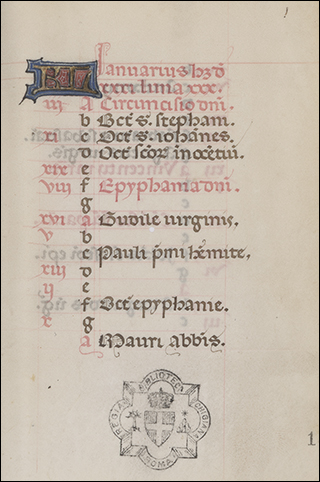 KL Januarius hz d
xxxi luna xxx.
iii A Circuncisio dni.
b Oct s. stephani.
xi c Oct s. iohanes.
d Oct scor inocetui.
xix e
viii f Epyphania dni.
g
xvi A Gudile virginis.
v b
c Pauli pmi hemite.
xiii d
ii e
f Oct epyphanie.
x g
A Mauri abbis.
BIBLIOTECA
CHIGIANA
ROMA
1